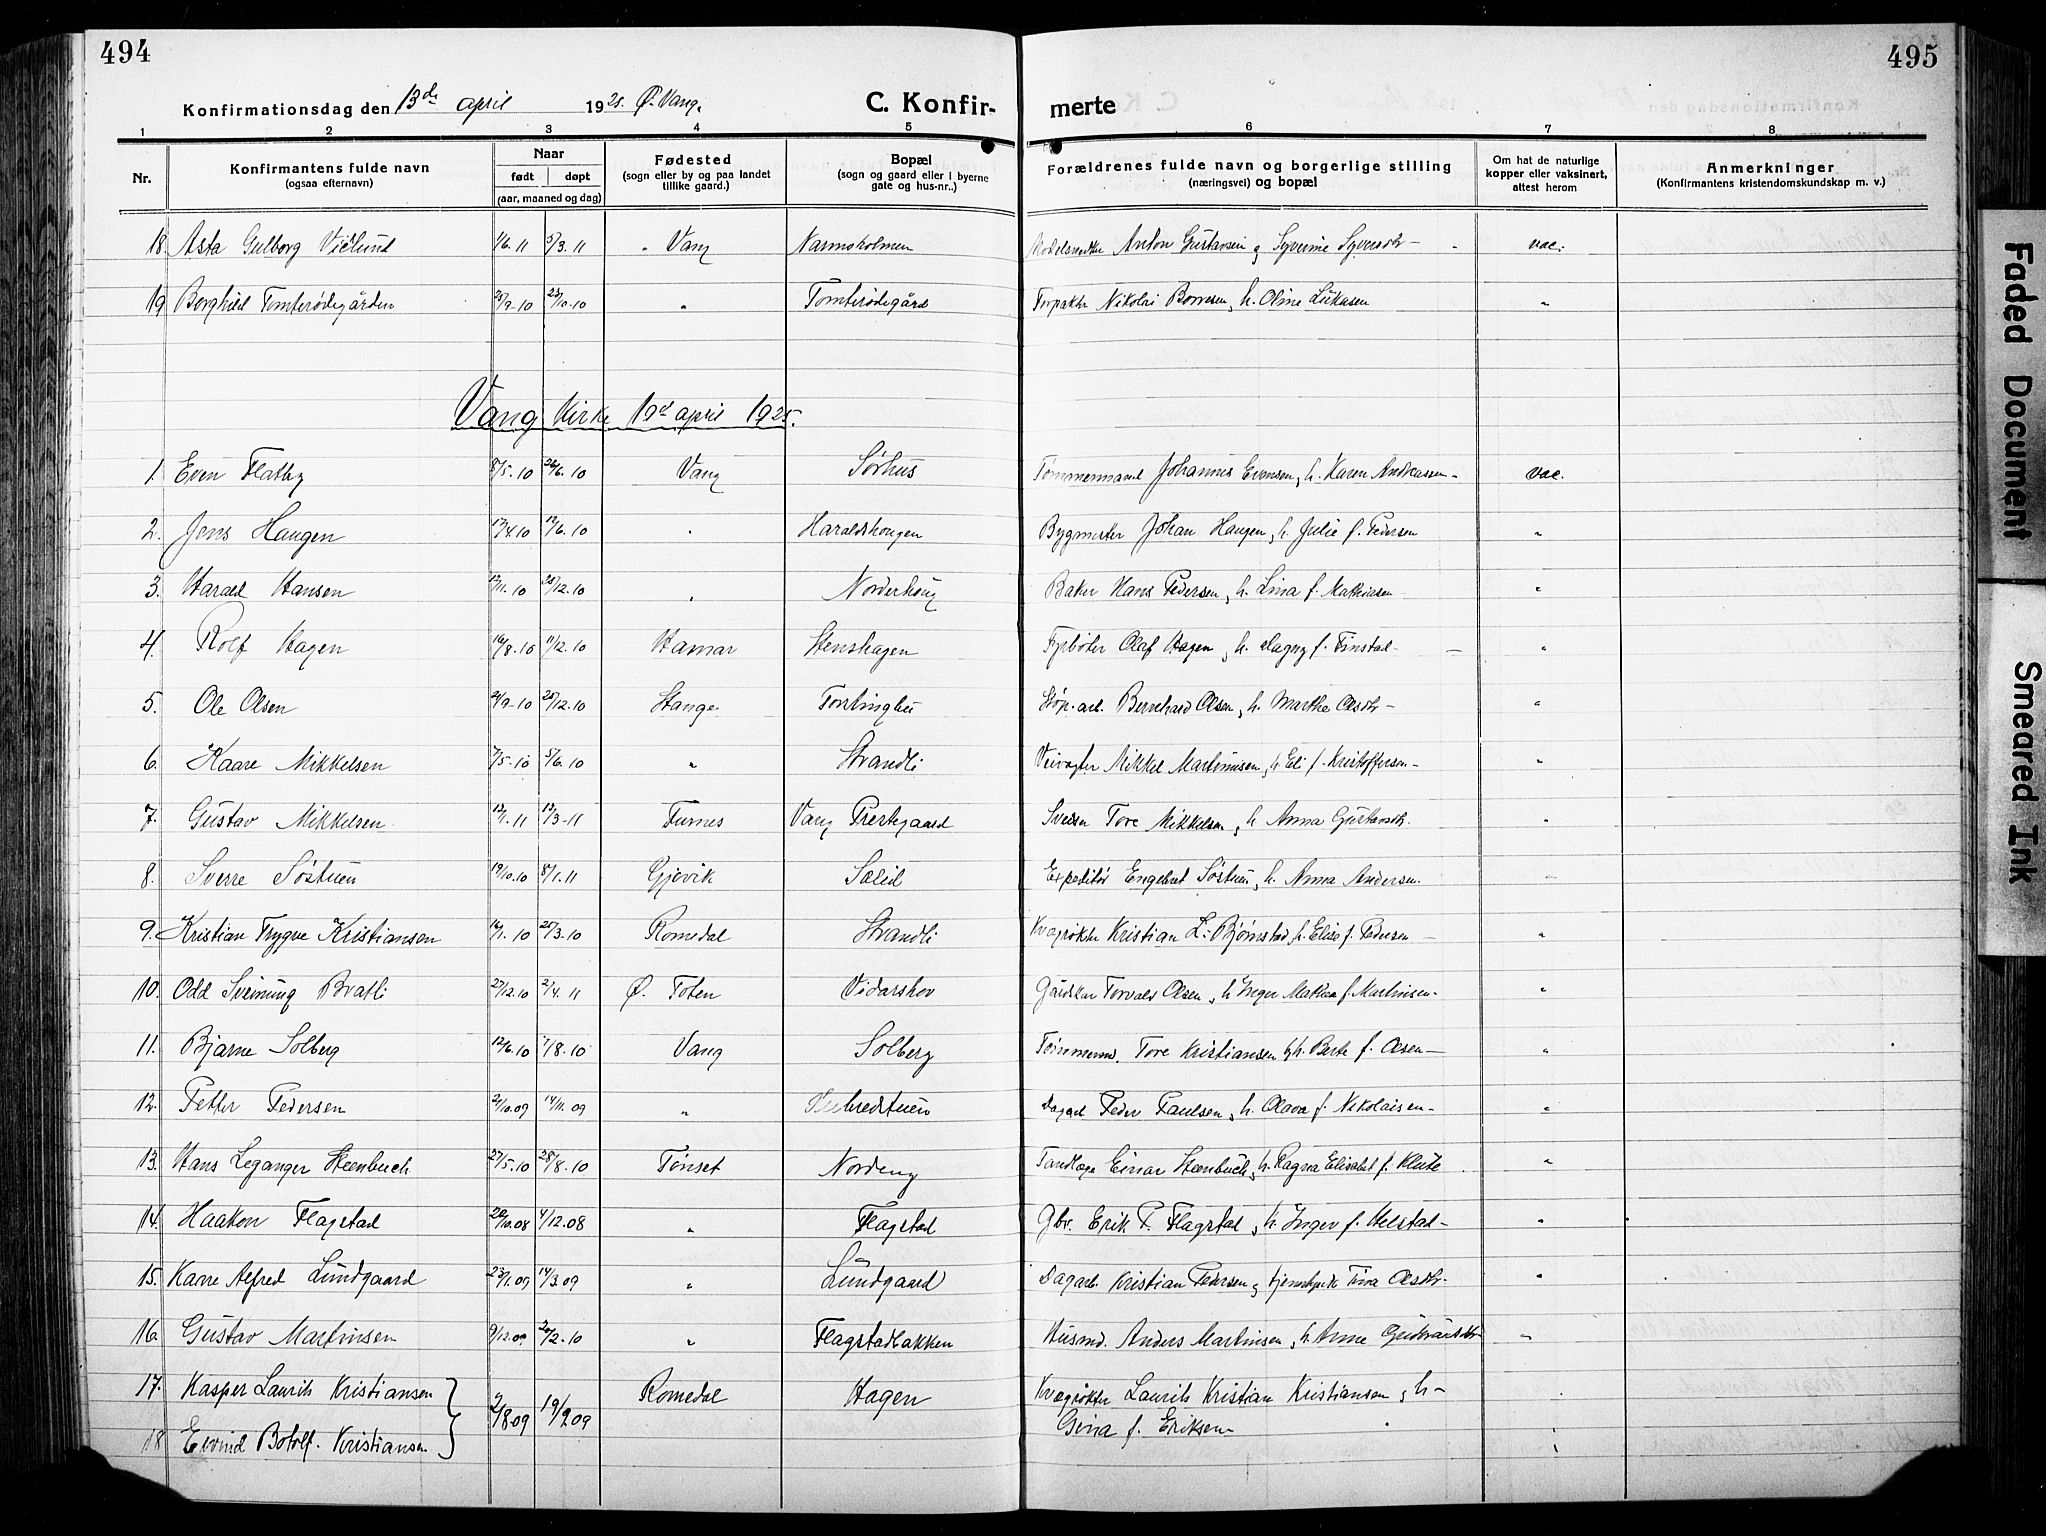 494
495
Konfirmationsdag den 13de april 1925. Ø. Vang.
C. Konfir-
merte
1 2 3 4 5 6 7 8
Nr.
Konfirmantens fulde navn
(ogsaa efternavn)
Naar
født døpt
(aar, maaned og dag)
Fødested
(sogn eller by og paa landet
tillike gaard.)
Bopæl
(sogn og gaard eller i byerne
gate og hus-nr.)
Forældrenes fulde navn og borgerlige stilling
(næringsvei) og bopæl
Om hat de naturlige
kopper eller vaksinert,
attest herom
Anmerkninger
(Konfirmantens kristendomskundskap m. v.)
18. Asta Gulborg Viclund 1/6. 11 5/3. 11 " Vang Narmoholmen Anton Gustavsen og Syverine Syversdtr - vac.
19 Borghild Tomterødegården 25/9-10 23/10-10 " Tomterødegård Forpakter Nikolai Borresen, h. Oline Lukasen "
Vang Kirke 19d april 1925.
1. Even Flatby 8/5. 10 26/6. 10 Vang Sørhus Tømmermand Johannes Evensen, h. Karen Andreassen - vac.
2. Jens Haugen 17/4. 10 12/6. 10 " Haraldshougen Bygmester Johan Haugen, h. Julie f. Pedersen "
3. Harald Hansen 12/11. 10 28/12. 10 " Norderhoug Baker Hans Pedersen, h. Lina f. Mathiasen "
4. Rolf Hagen 16/8. 10 11/12. 10 Hamar Stenshagen Fyrbøter Olaf Hagen, h. Dagny f. Finstad - "
5. Ole Olsen 21/9-10 28/12. 10 Stange Støp. arb. Bernhard Olsen, h. Marthe Olsdtr - "
6. Kaare Mikkelsen 7/5-10 5/6. 10 " Strandli Veivogter Mikkel Martinusen, h. Eli f. Kristoffersen - "
7. Gustav Mikkelsen 13/1. 11 12/3-11 Furnes Vang Prestegaard Sveiser Tore Mikkelsen, h. Anna Gustavsdtr. "
8. Sverre Søstuen 19/10. 10 8/1. 11 Gjøvik Sælid Expeditør Engebret Søstuen, h. Anna Andersen. "
9. Kristian Trygve Kristiansen 16/1. 10 25/3. 10 Romedal Strandli Kvægrøkter Kristian L. Bjørnstad, h. Elise f. Pedersen - "
10. Odd Sveinung Bratli 27/12. 10 2/4. 11 Ø. Toten Vidarshov Gårdskar Torvald Olsen, h. Inger Mathea f. Martinsen - "
11. Bjarne Solberg 12/6. 10 7/8. 10 Vang Solberg Tømmermd. Tore Kristiansen og h. Berte f. Olsen - "
12. Petter Pedersen 2/10. 09 14/11. 09 " Peder Paulsen, h. Olava f. Nikolaisen - "
13. Hans Leganger Steenbuch 27/5. 10 28/8. 10 Tønset Nordeng Tandlæge Einar Steenbuch, h. Ragna Elisabet f. Klute "
14. Haakon Flagstad 20/10. 08 4/12. 08 " Flagstad Gbr. Erik P. Flagstad, h. Inger f. Helstad - "
15. Karre Alfred Lundgaard 23/1. 09 14/3. 09 " Lundgaard Dagarb. Kristian Pedersen og Tina Olsdtr. "
16. Gustav Martinsen 9/12. 09 20/2. 10 " Flagstadbakken Husmd. Anders Martinsen, h. Anne Gudbrandsdtr "
17. Kasper Laurits Kristiansen 2/8. 09 19/9. 09 Romedal Hagen Kvægrøkter Laurits Kristian Kristiansen, h -
18 Eivind Botolf. Kristiansen Gina f. Eriksen -
Faded Document
Smeared Ink